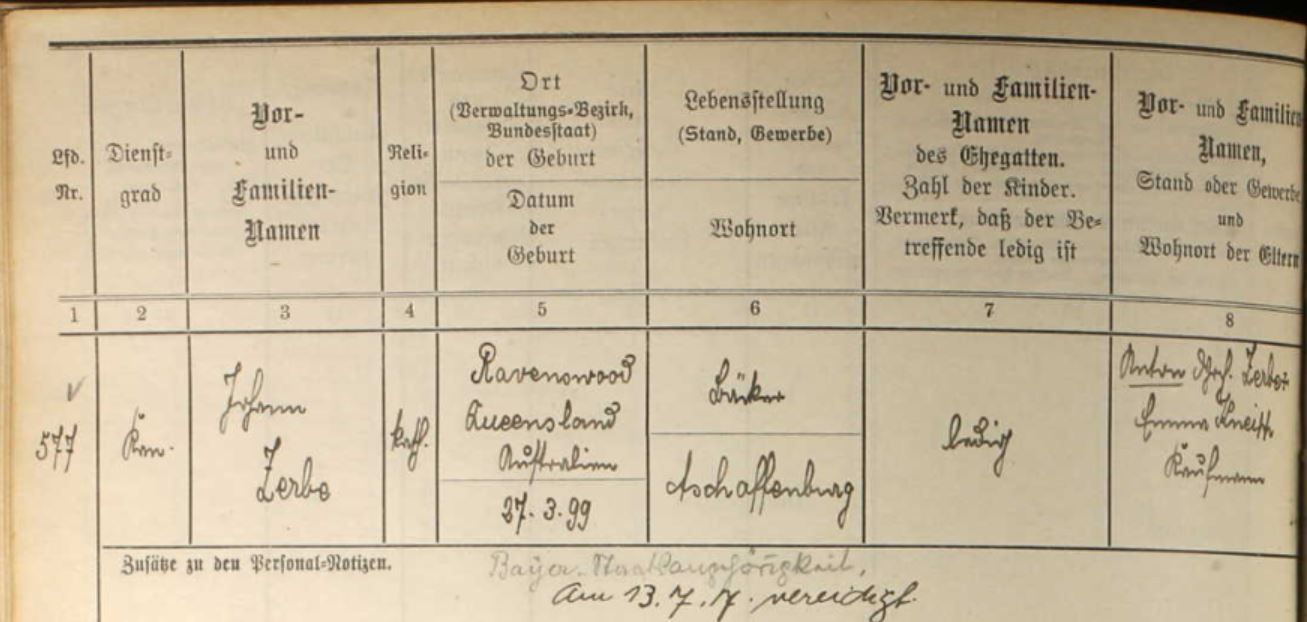 Lfd.
Nr.
Dienst=
grad
Vor-
und
Familien-
Namen
Reli=
gion
Ort
(Verwaltungs=Bezirk,
Bundesstaat)
der Geburt
Datum
der
Geburt
Lebensstellung
(Stand, Gewerbe)
Wohnort
Vor- und Familien-
Namen
des Ehegatten.
Zahl der Kinder.
Vermerk, daß der Be=
treffende ledig ist
Vor- und Familien
Namen,
Stand oder Gewerbe
und
Wohnort der Eltern
1 2 3 4 5 6 7 8
577
Kan.
Johann
Zerbe
kath.
Ravenswood
Queensland
Australien
27.3.99
Bäcker
Aschaffenburg
ledig
Anton
Emma Kneisp
Kaufmann
Zusätze zu den Personal=Notizen.
Bayer. Staatsangehörigkeit,
Am 13.7.17. vereidigt